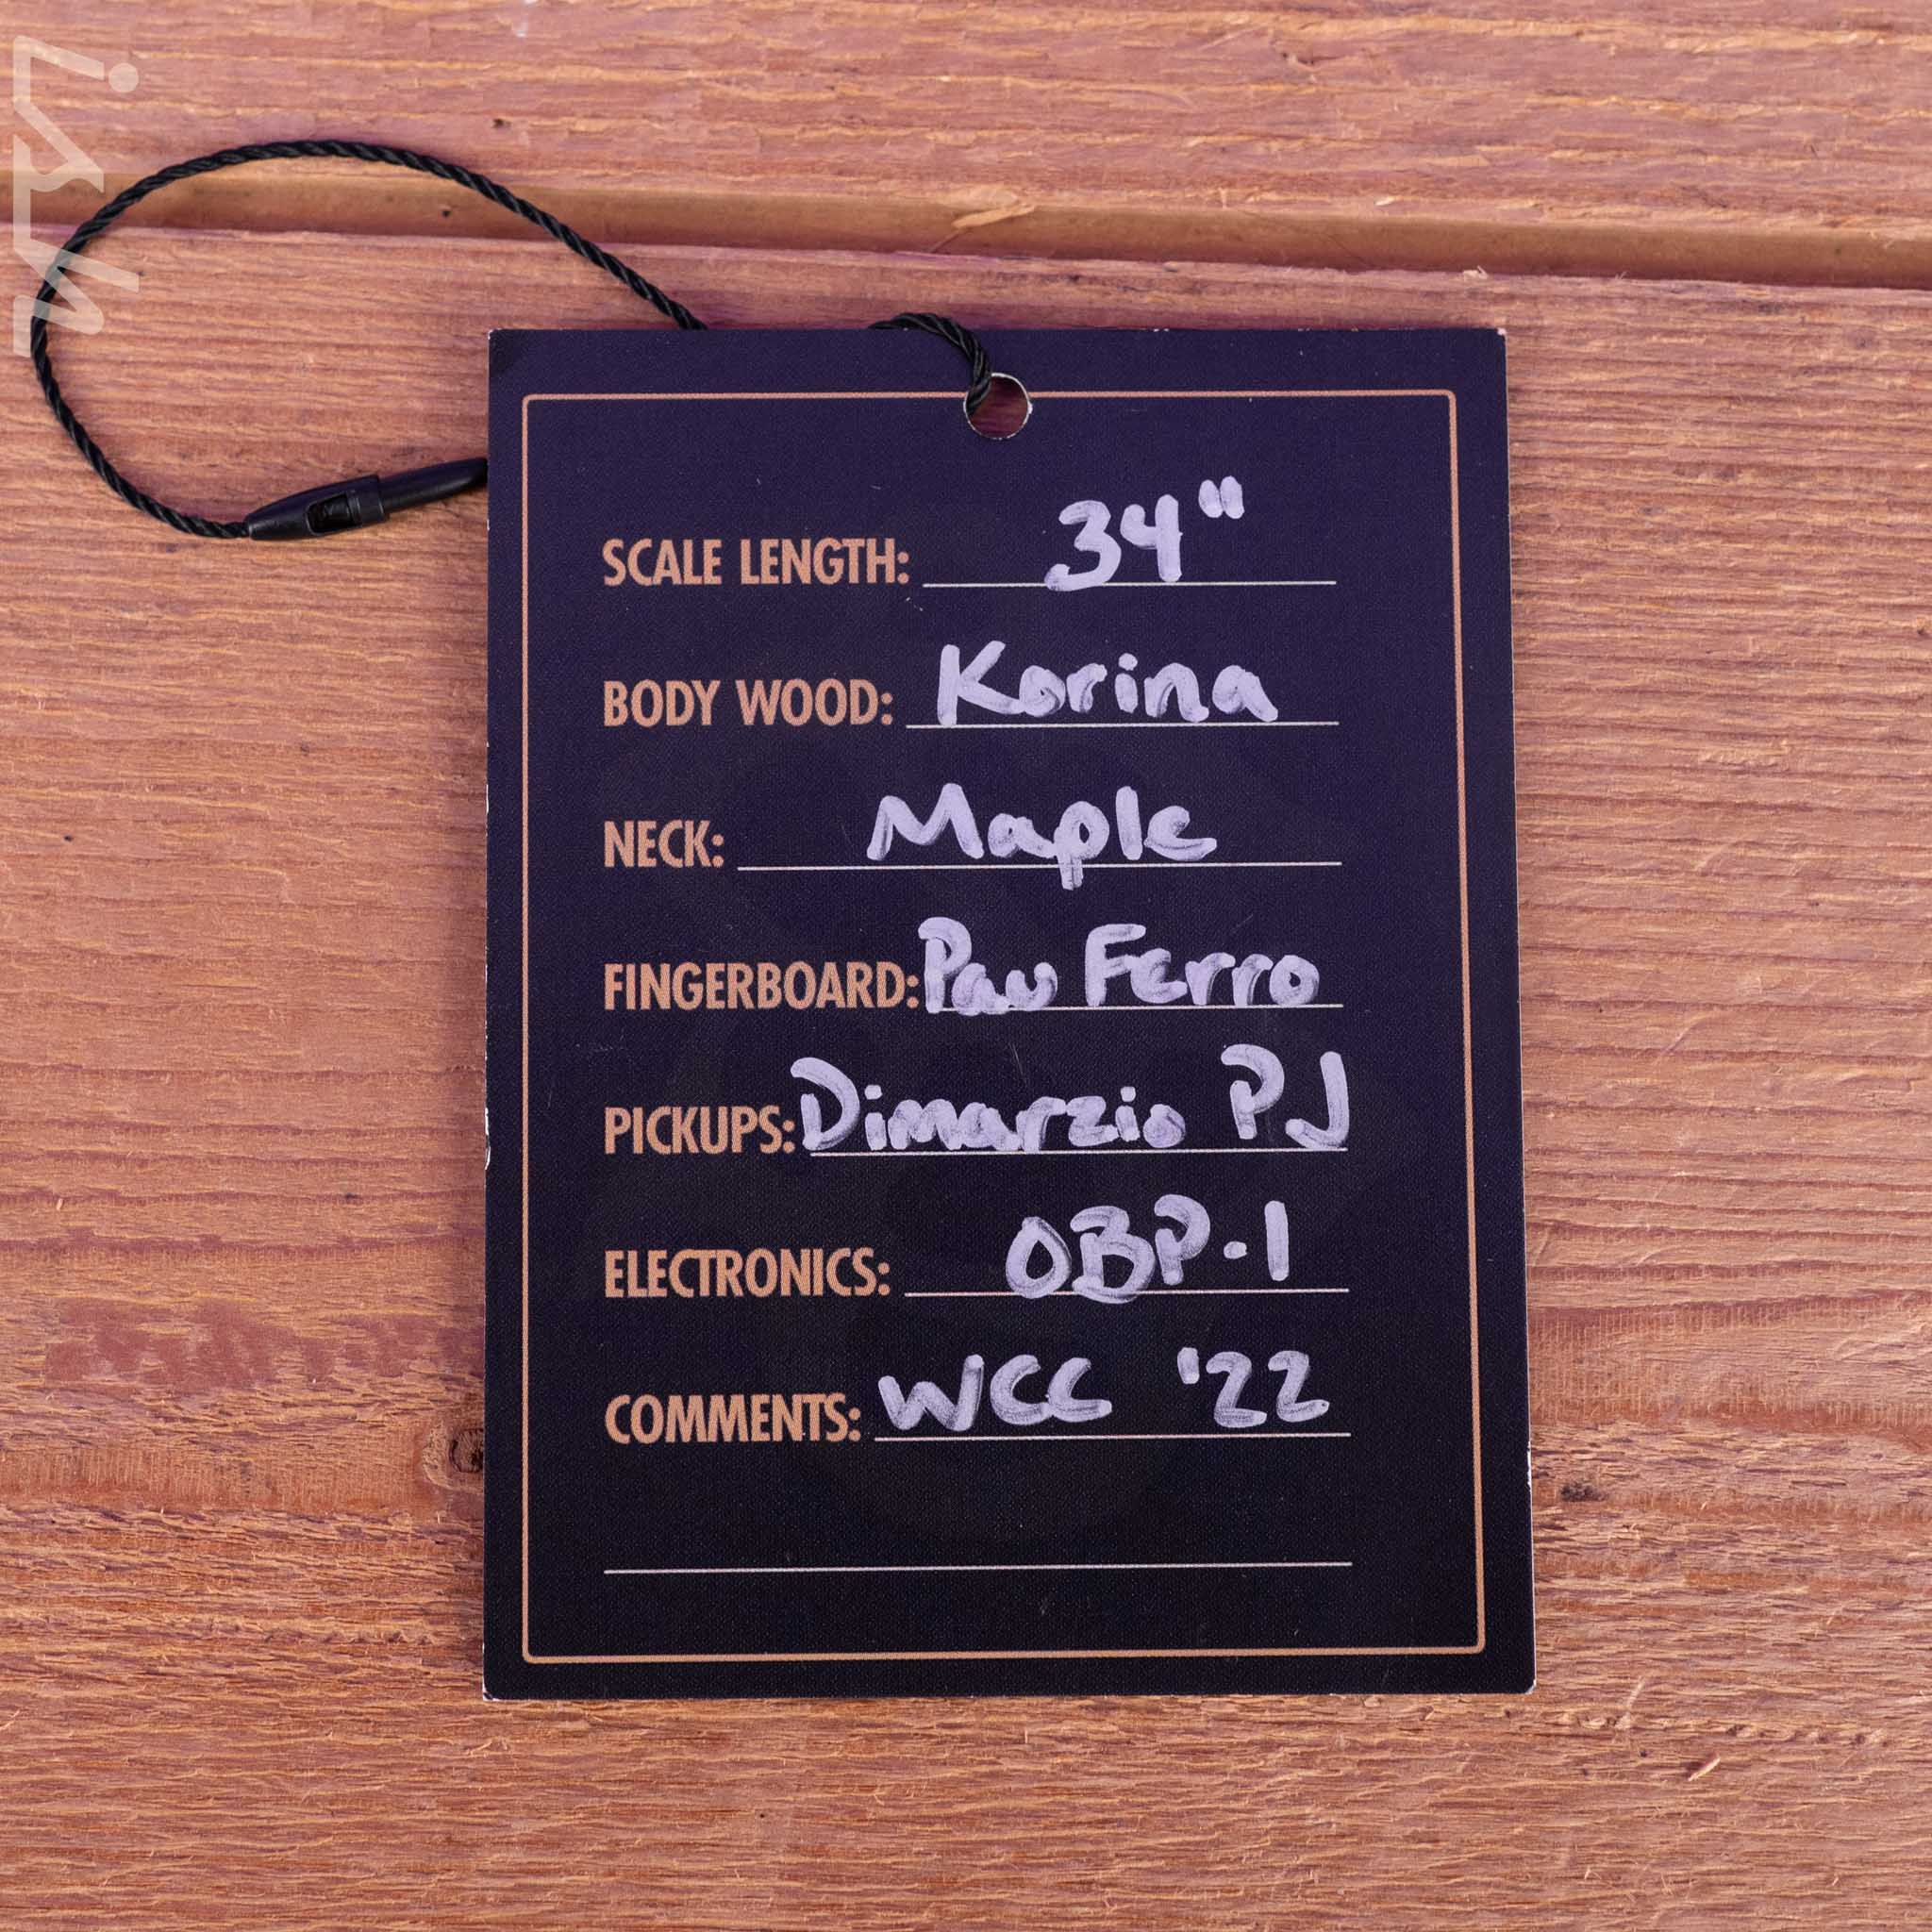 SCALE LENGTH: 34"
BODY WOOD: Korina
NECK: Maple
FINGERBOARD: Pau Ferro
PICKUPS: Dimarzio PJ
ELECTRONICS: OBP-1
COMMENTS: WCC '22